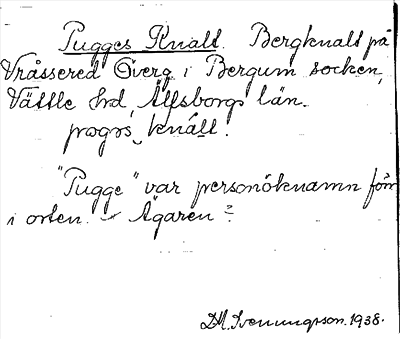 Pugges Knall. Bergknalt på
Vråssered Överg i Bergum socken,
Vättle hrd, Älfsborgs län.
pogəs knált.
"Pugge" var personöknamn förr
i orten. – Ägaren?
D.A. Svenungsson. 1938.